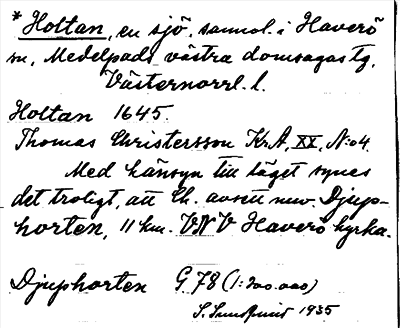 * Holtan, en sjö, sannol. i Haverö
sn, Medelpads västra domsagas tg,
Västernorrl. l.
Holtan 1645.
Thomas Christersson Kr. A, XX, N:o 4.
Med hänsyn till läget synes
det troligt, att Ch. avsett nuv. Djup-
horten, 11 km. VNV Haverö kyrka.
Djuphorten G. 78 (1:200.000)
S. Sundquist 1935